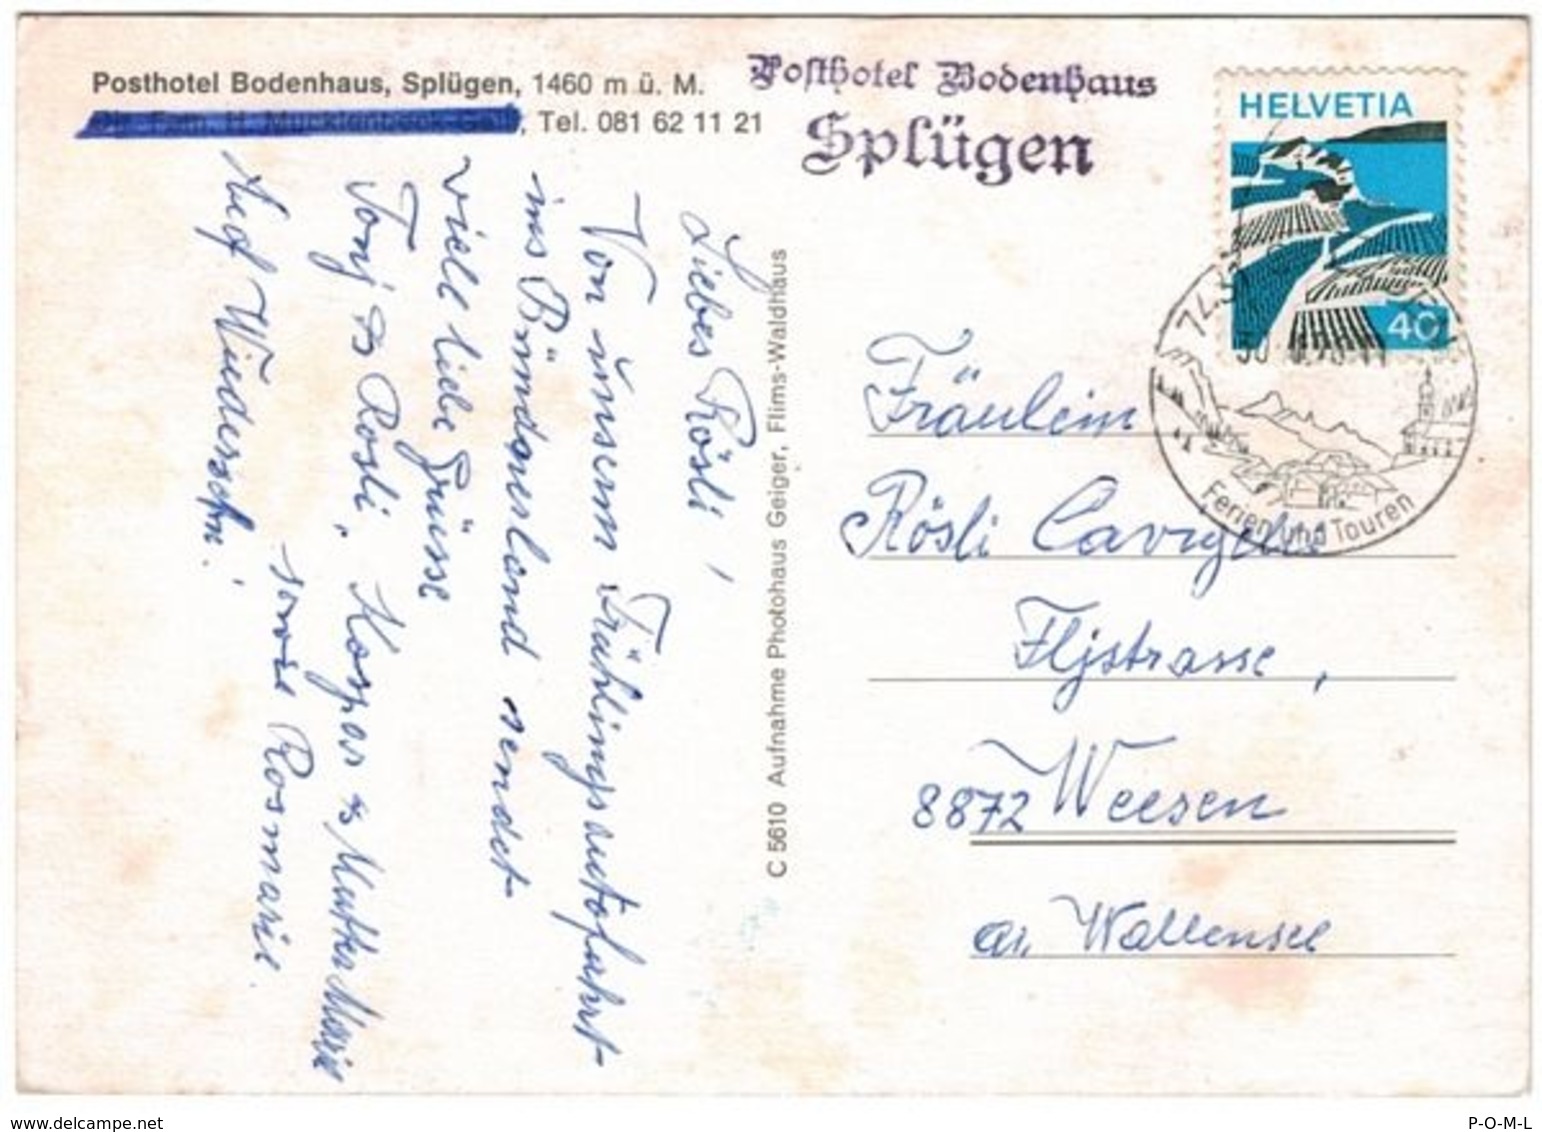 Posthotel Bodenhaus, Splügen, 1460 m ü. M.
, Tel. 081 62 11 21
Posthotel Bodenhaus
Splügen
HELVETIA
40
Ferien und Touren
Liebes Rösli!
Von unserm Frühlingsautofahrt
ins Bündnerland sendet
viele liebe Grüsse
Tonj & Rösli, Kaspar & Mutter Marie
sowie Rosmarie
Auf Wiedersehn!
C 5610 Aufnahme Photohaus Geiger, Flims-Waldhaus
Fräulein
Rösli
Fljstrasse,
8872 Weesen
a. Wallensee
delcampe.net
P-O-M-L